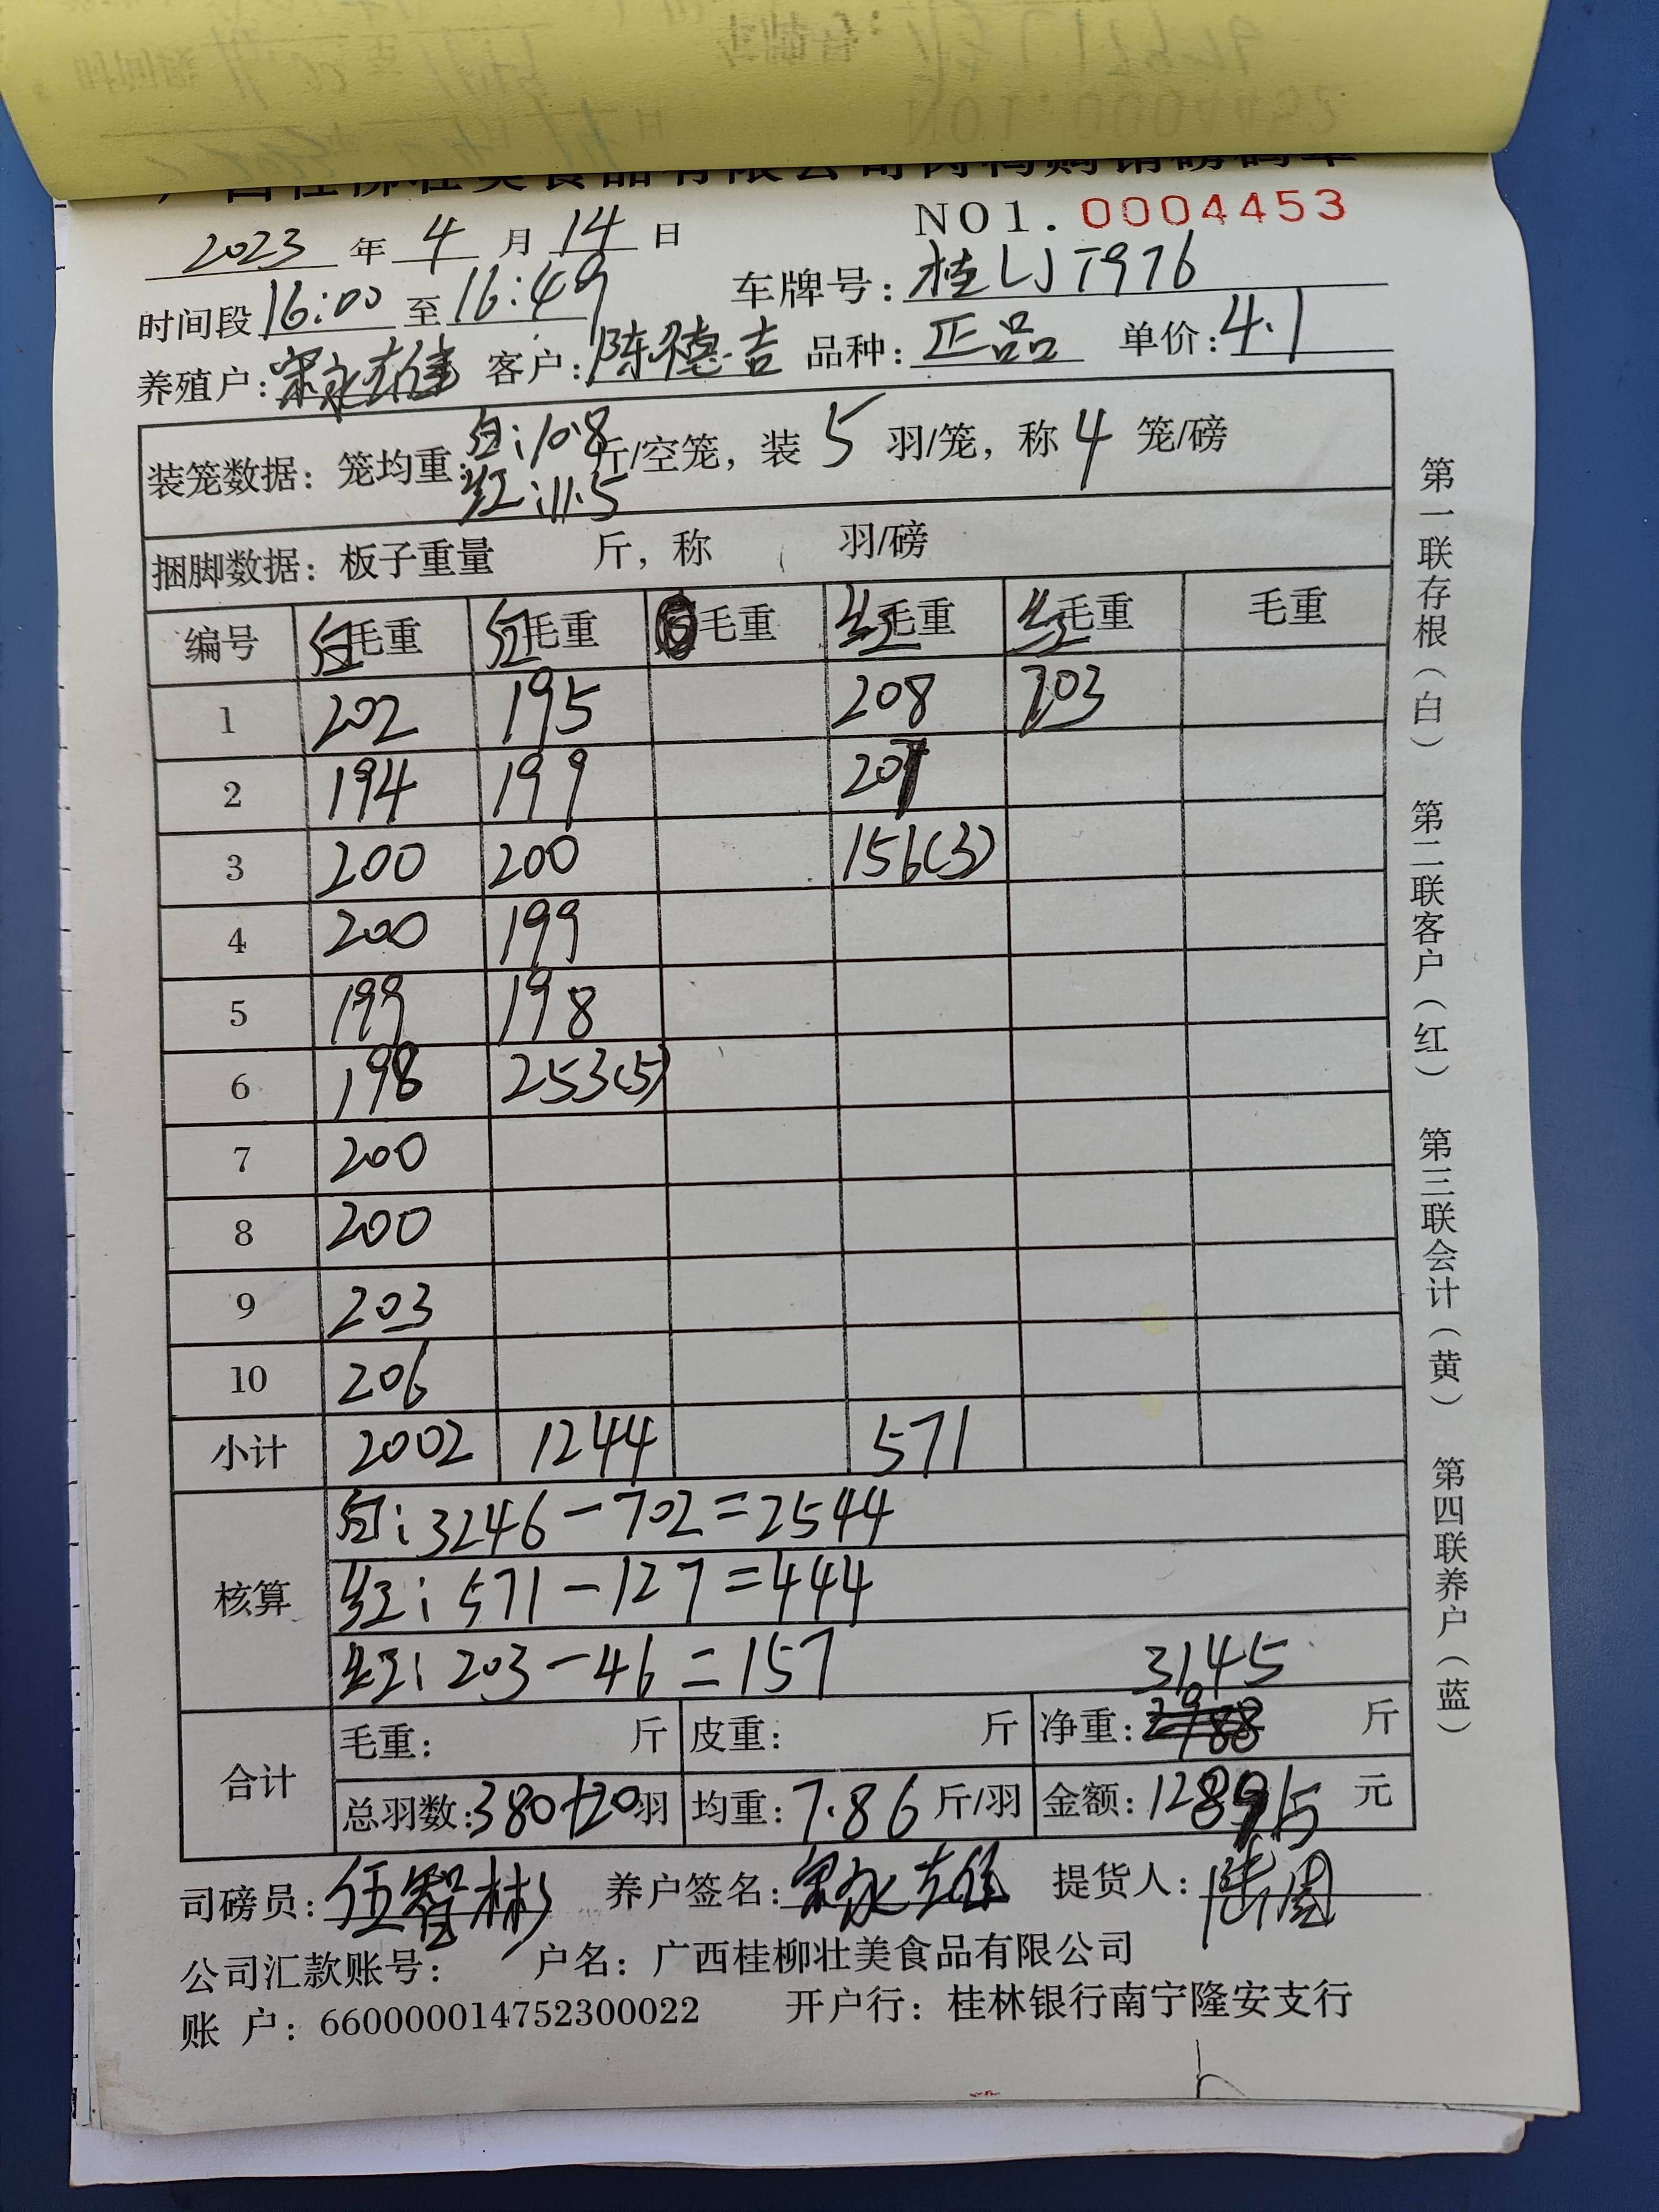 NO1. 0004453
2023 年 4 月 14 日
时间段 16:00 至 16:49 车牌号: 桂LJT976
养殖户: 宋永雄 客户: 陈德吉 品种: 正品 单价: 4.1
装笼数据: 笼均重: 白:10.8 红:11.5 斤/空笼, 装 5 羽/笼, 称 4 笼/磅
捆脚数据: 板子重量 斤, 称 羽/磅
编号 白毛重 白毛重 毛重 红毛重 红毛重 毛重
1 202 195 208 203
2 194 199 207
3 200 200 156(3)
4 200 199
5 199 198
6 198 253(5)
7 200
8 200
9 203
10 206
小计 2002 1244 571
核算 白: 3246-702=2544
红: 571-127=444
红: 203-46=157
3145
合计 毛重: 斤 皮重: 斤 净重: 斤
总羽数: 380+20羽 均重: 7.86 斤/羽 金额: 12895 元
司磅员: 伍智彬 养户签名: 宋永雄 提货人:
公司汇款账号: 户名: 广西桂柳壮美食品有限公司
账 户: 660000014752300022 开户行: 桂林银行南宁隆安支行
第一联存根(白) 第二联客户(红) 第三联会计(黄) 第四联养户(蓝)